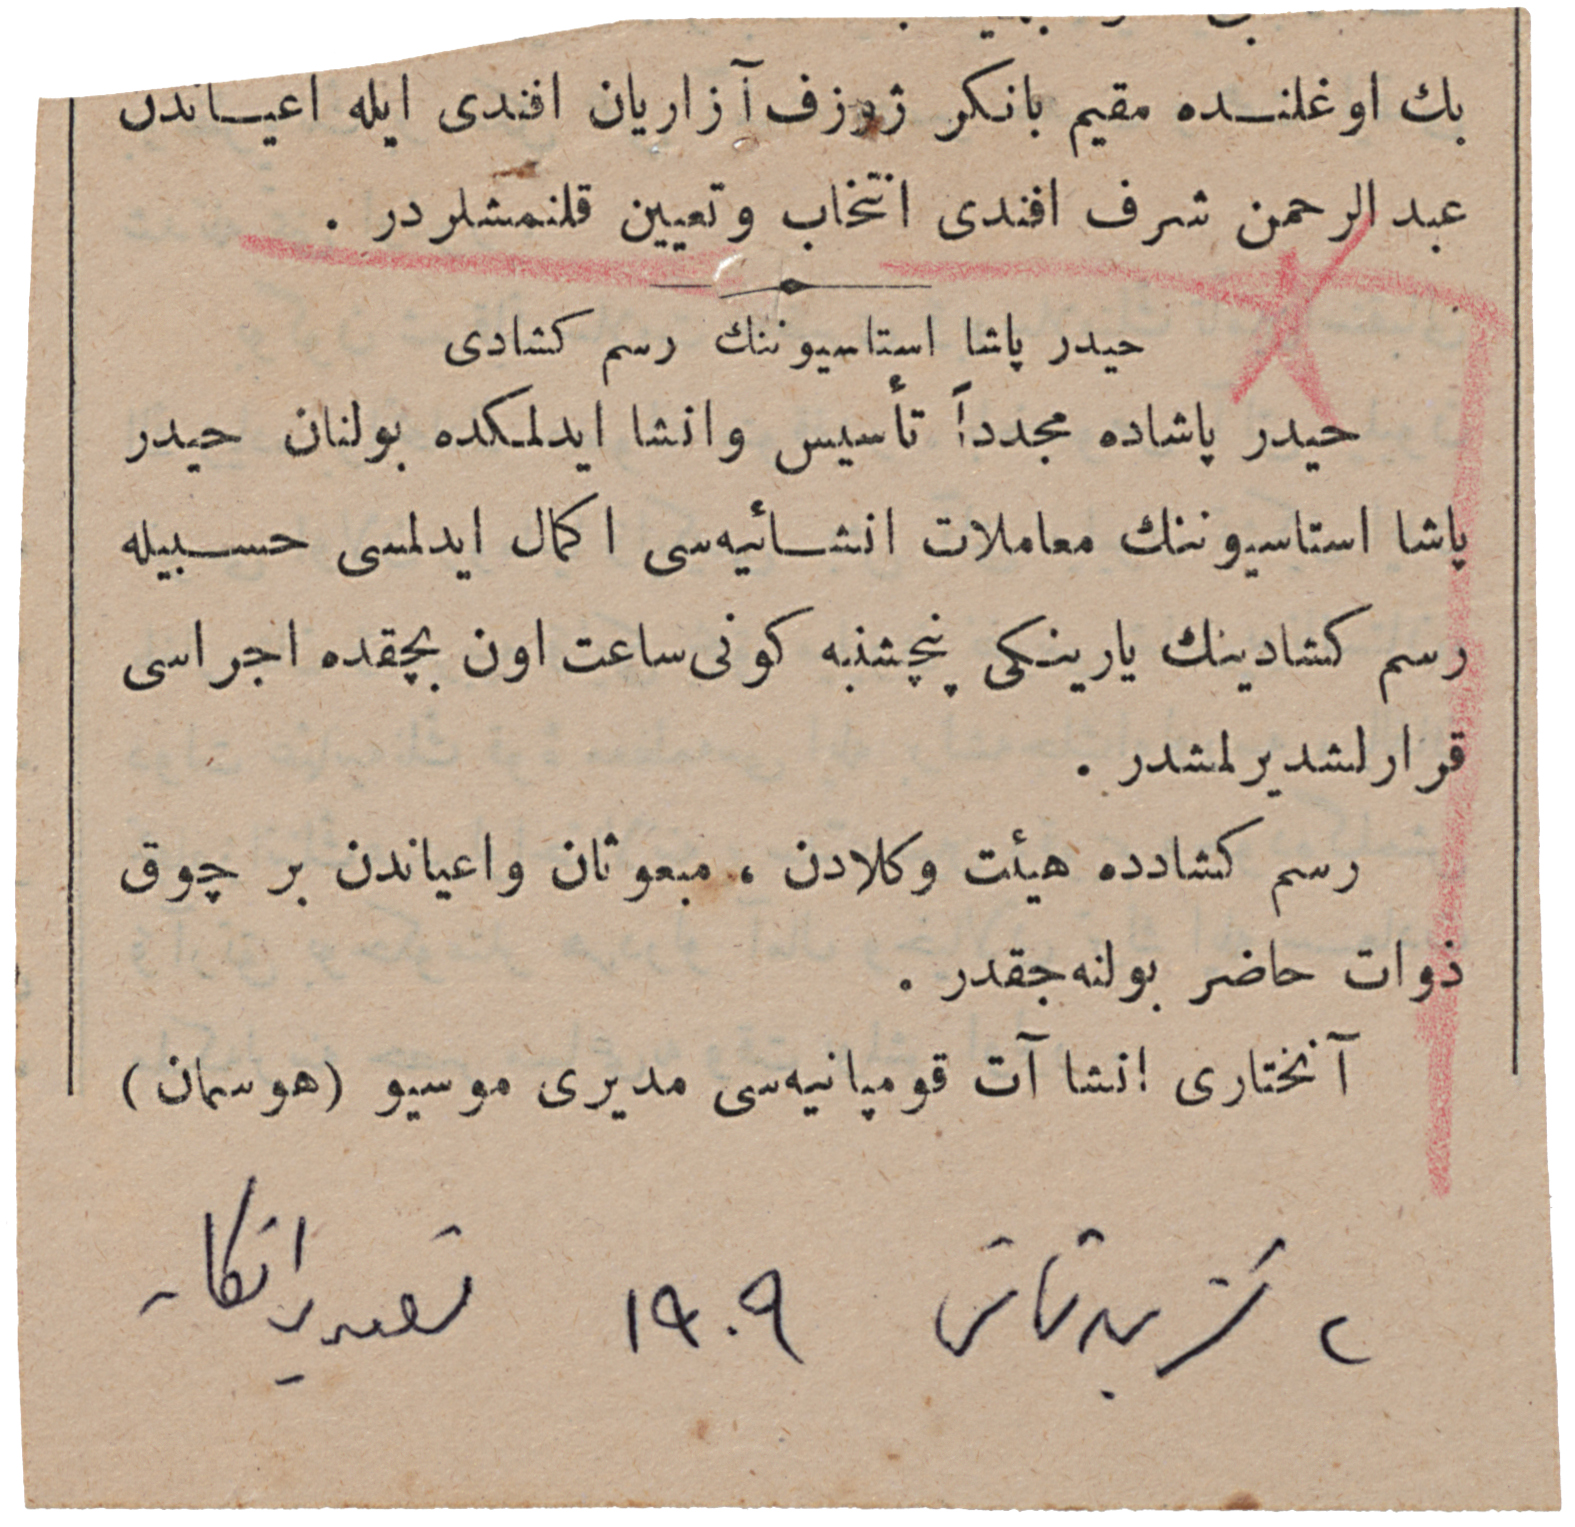 بك اوغلنــده مقيم بانكر ژوزف آزاريان افندى ايله اعيــاندن
عبد الرحمن شرف افندى انتخاب وتعيين قلنمشلردر .
حيدر پاشا استاسيوننك رسم كشادى
حيدر پاشاده مجدداً تأسيس وانشا ايدلمكده بولنان حيدر
پاشا استاسيوننك معاملات انشــائيه‌سى اكمال ايدلمسى حســبيله
رسم كشادينك يارينكى پنچشنبه كونى ساعت اون بچقده اجراسى
قرارلشديرلمشدر .
رسم كشادده هيئت وكلادن ، مبعوثان واعياندن بر چوق
ذوات حاضر بولنه‌جقدر .
آنختارى انشاآت قومپانيه‌سى مديرى موسيو (هوسمان)
٢ تشرين ثانى ١٩٠٩